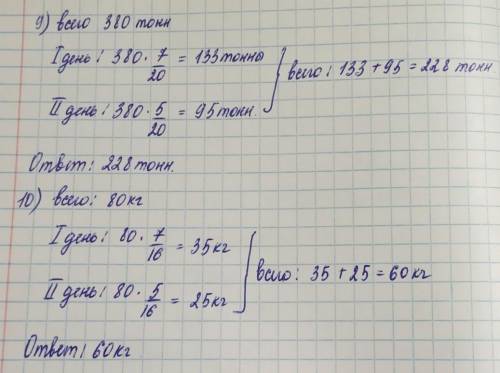 9) всего 380 тонн
I день: 380 · 7/20 = 133 тонны
всего: 133 + 95 = 228 тонн.
II день: 380 · 5/20 = 95 тонн.
Ответ: 228 тонн.
10) всего: 80 кг
I день: 80 · 7/16 = 35 кг
всего: 35 + 25 = 60 кг
II день: 80 · 5/16 = 25 кг
Ответ: 60 кг